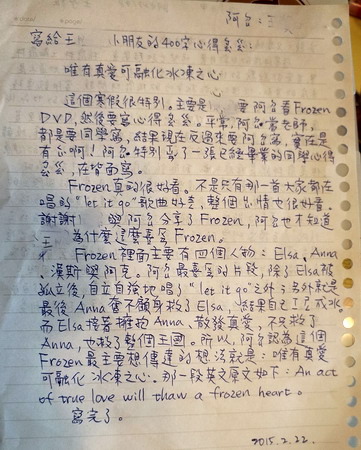 阿公：王
寫給王 小朋友的400字心得參參：
唯有真愛可融化冰凍之心
這個寒假很特別，主要是 要阿公看Frozen
DVD，然後要寫心得參參。平常，阿公當老師，
都是要同學寫，結果現在反過來要阿公寫，實在是
有 啊！阿公特別留了一張已經畢業的同學心得
參參，在背面寫。
Frozen真的很好看。不是只有那一首大家都在
唱的"let it go"歌曲好聽，整個劇情也很好看。
謝謝 與阿公分享了Frozen，阿公也才知道
王 為什麼這麼喜愛Frozen。
Frozen裡面主要有四個人物：Elsa、Anna、
漢斯與阿克。阿公最喜愛的片段，除了Elsa被
孤立後，自立自強地唱了"let it go"之外；另外就是
最後Anna奮不顧身救了Elsa，結果自己
而Elsa接著擁抱Anna、散發真愛，不只救了
Anna，也救了整個王國。所以，阿公認為這個
Frozen最主要想傳達的想法就是：唯有真愛
可融化冰凍之心。那一段英文原文如下：An act
of true love will thaw a frozen heart。
寫完了。
2015.2.22.